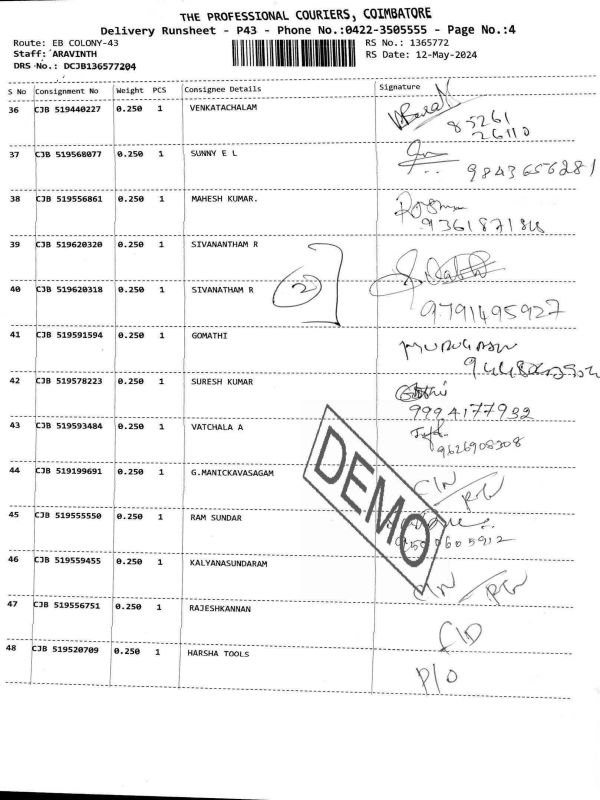 THE PROFESSIONAL COURIERS, COIMBATORE
Delivery Runsheet - P43 - Phone No.:0422-3505555 - Page No.:4
Route: EB COLONY-43 RS No.: 1365772
Staff: ARAVINTH RS Date: 12-May-2024
DRS No.: DCJB136577204
S No Consignment No Weight PCS Consignee Details Signature
36 CJB 519440227 0.250 1 VENKATACHALAM
85261
26110
37 CJB 519568077 0.250 1 SUNNY E L
9843656281
38 CJB 519556861 0.250 1 MAHESH KUMAR.
39 CJB 519620320 0.250 1 SIVANANTHAM R
2
40 CJB 519620318 0.250 1 SIVANATHAM R
9791495927
41 CJB 519591594 0.250 1 GOMATHI
42 CJB 519578223 0.250 1 SURESH KUMAR
9994177932
43 CJB 519593484 0.250 1 VATCHALA A
9626908308
DEMO
44 CJB 519199691 0.250 1 G.MANICKAVASAGAM
45 CJB 519555550 0.250 1 RAM SUNDAR
46 CJB 519559455 0.250 1 KALYANASUNDARAM
47 CJB 519556751 0.250 1 RAJESHKANNAN
48 CJB 519520709 0.250 1 HARSHA TOOLS
P/O